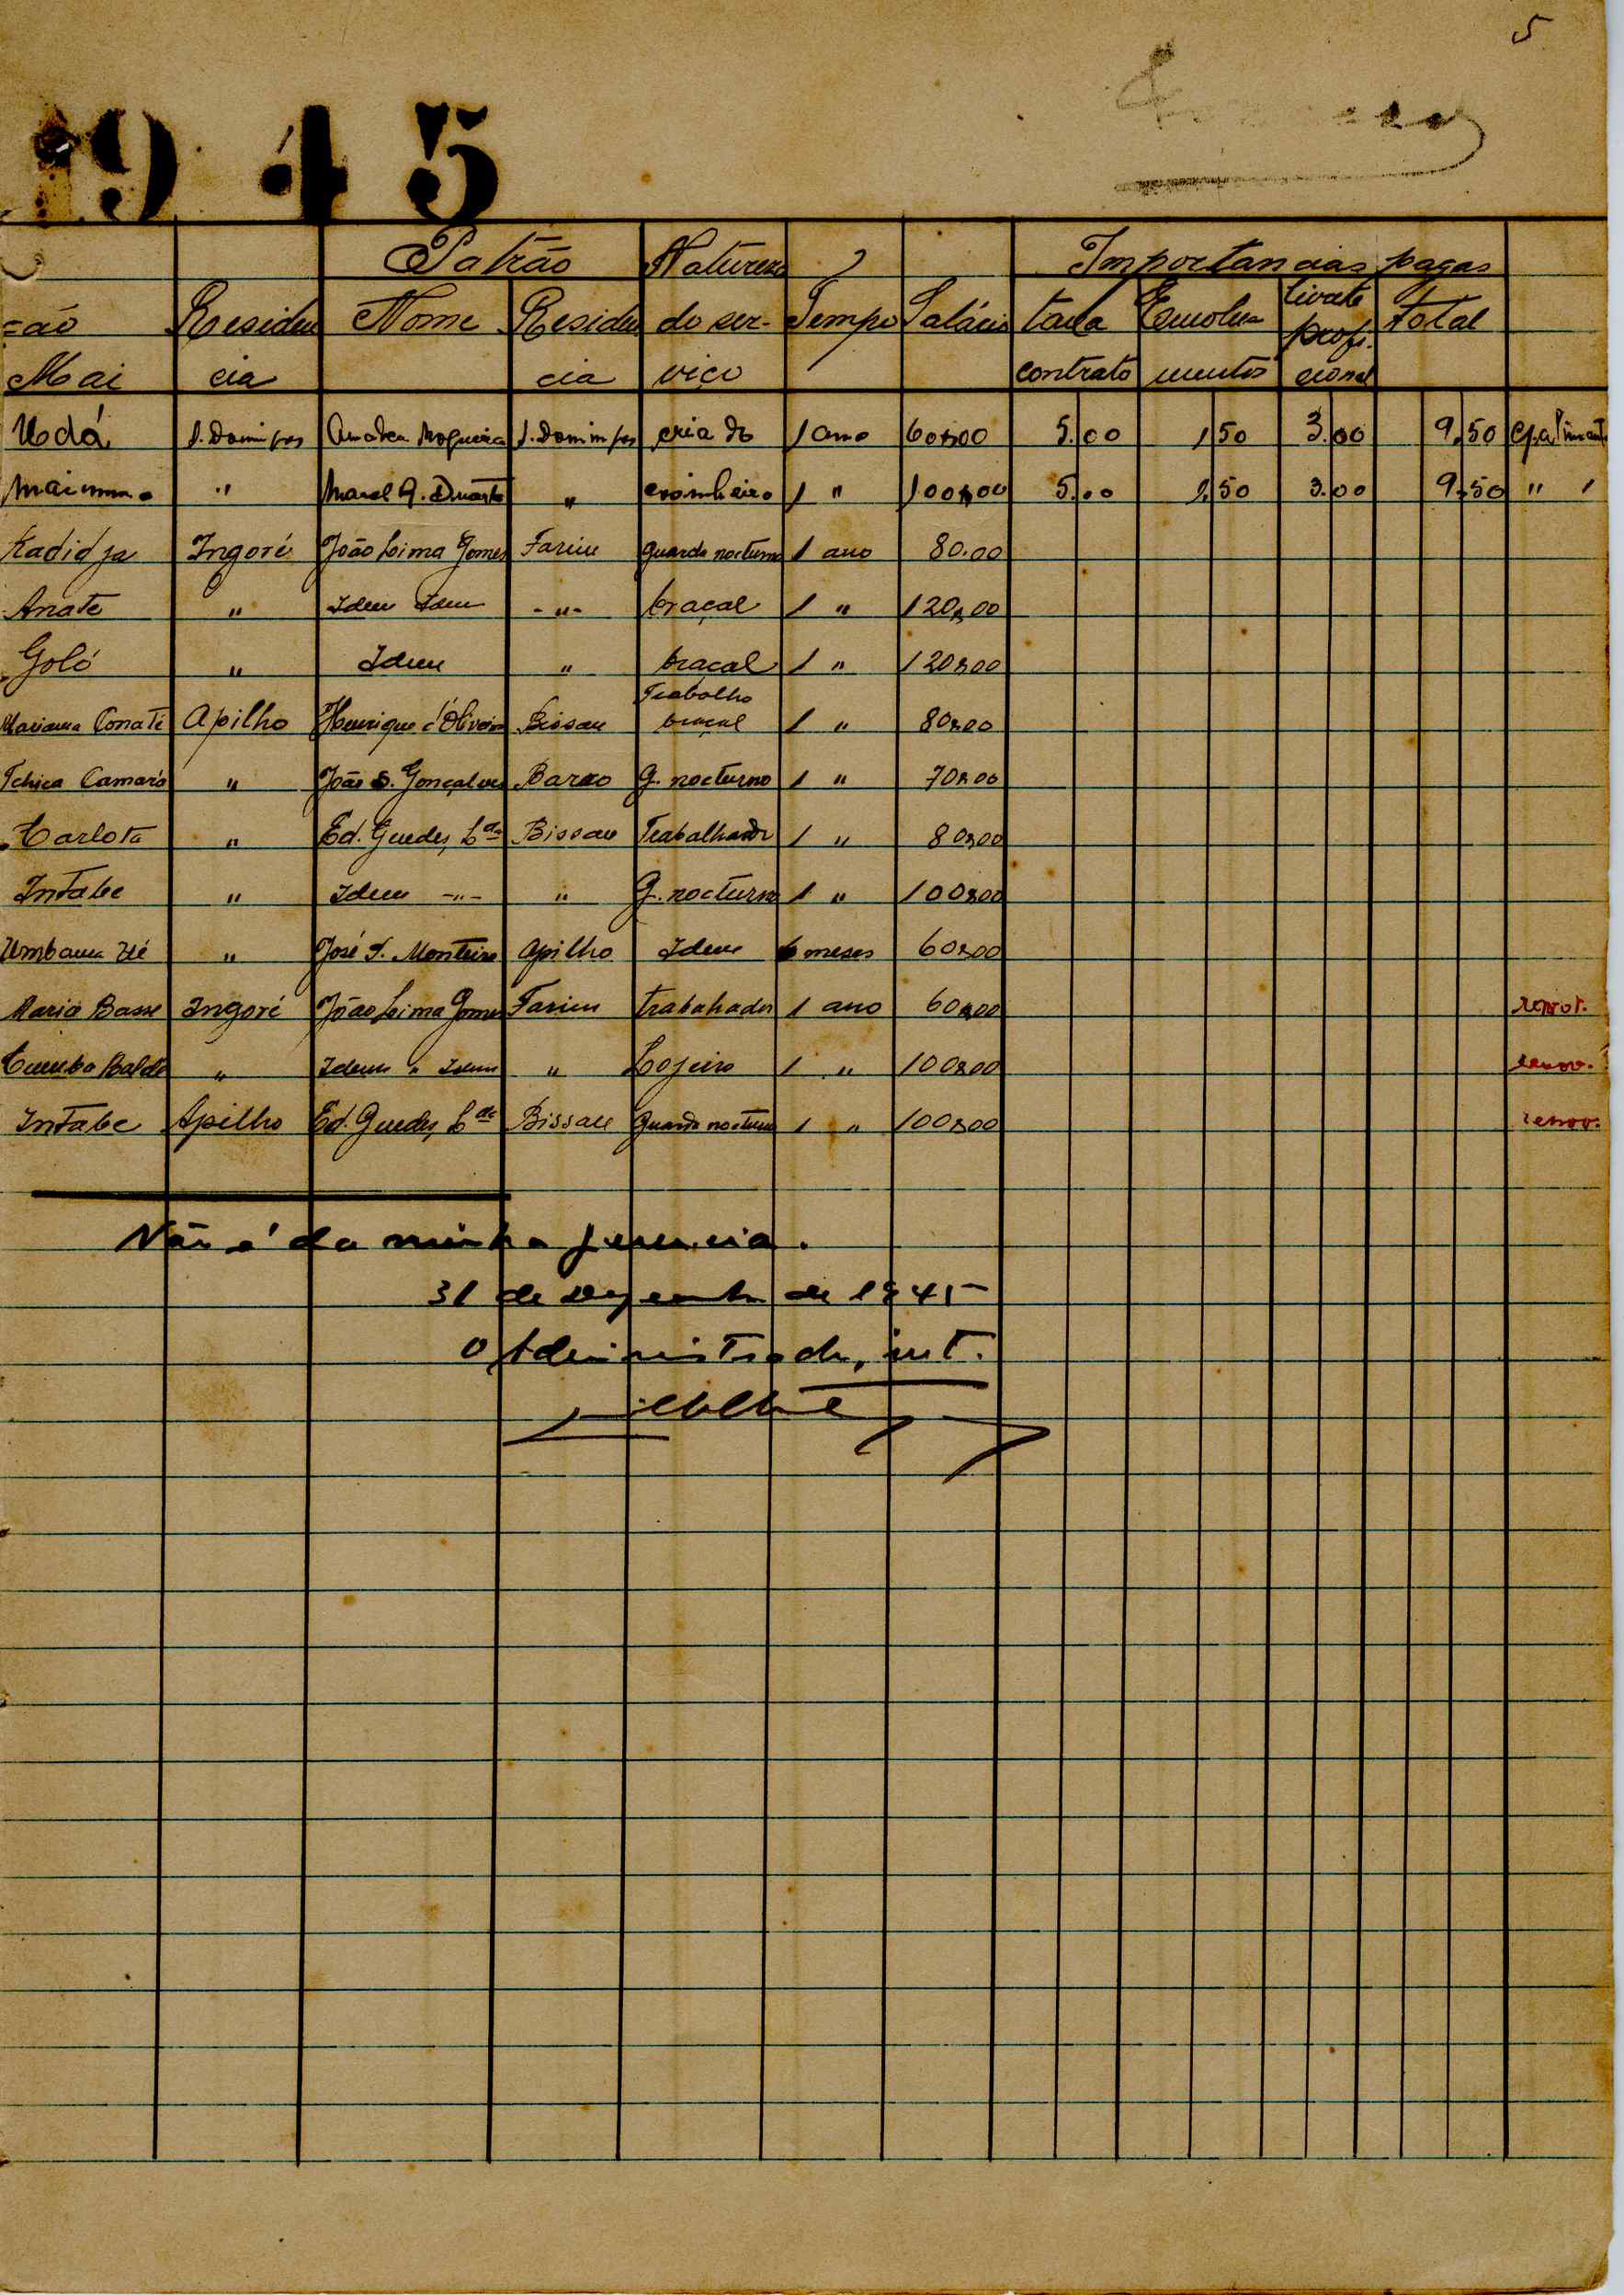 5
1945
Patrão Natureza Importancias pagas
=ão Residen Nome Residen do ser- Tempo Salário taxa Emolu livrete total
profi.
Mai cia cia viço contrato mentos cional
Udá S. Domingos Amadeu Nogueira S. Domingos criado 1 ano 60$00 5.00 1,50 3.00 9,50
" Manel A. Duarte " cosinheiro 1 " 100$00 5.00 1,50 3.00 9,50 " "
Kadidja Ingoré João Lima Gomes Farim guarda nocturno 1 ano 80.00
Anate " Idem Idem -"- braçal 1 " 120$00
Goló " Idem " braçal 1 " 120$00
Trabalho
Mariama Conaté Apilho Henrique d'Oliveira Bissau braçal 1 " 80$00
Tchica Camará " João S. Gonçalves Barro G. nocturno 1 " 70$00
Carlota " Ed. Guedes, Lda Bissau Trabalhador 1 " 80$00
Intabe " Idem -"- " G. nocturno 1 " 100$00
Umbana " José S. Monteiro Apilho Idem 6 meses 60$00
Maria Basse Ingoré João Lima Gomes Farim trabahador 1 ano 60$00 renov.
Cumba Baldé " Idem " Idem " Lojeiro 1 " 100$00 renov.
Intabe Apilho Ed. Guedes, Lda Bissau Guarda nocturno 1 " 100$00 renov.
Não é da minha gerencia.
31 de Dezembro de 1945
O Administrador, int.